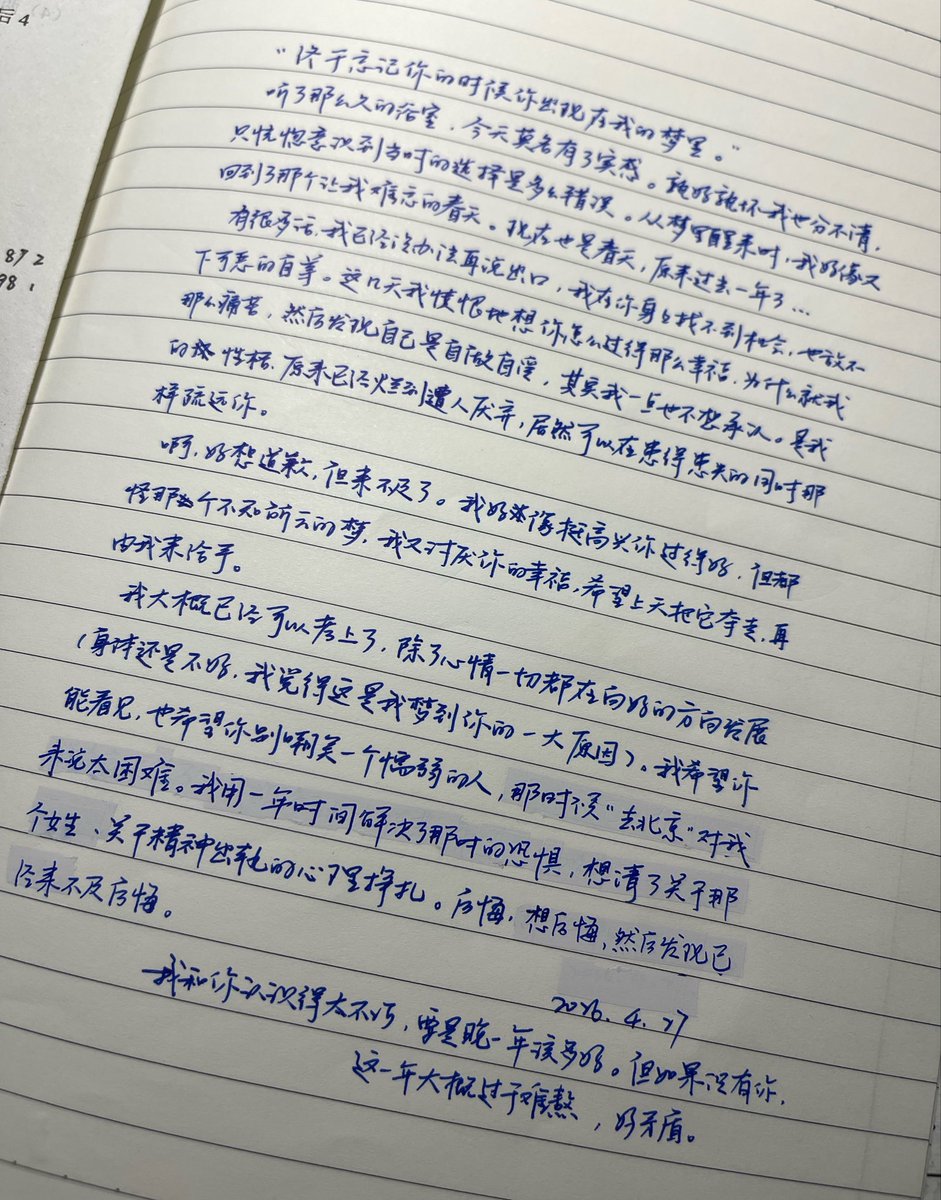 后4
872
98 1
“终于忘记你的时候你出现在我的梦里。”
听了那么久的浴室，今天莫名有了实感。孰好孰坏我也分不清，
只恍惚意识到当时的选择是多么错误。从梦里醒来时，我好像又
回到了那个让我难忘的春天。现在也是春天，原来过去一年了…
有很多话，我已经没办法再说出口，我在你身上找不到机会，也放不
下可悲的自尊。这几天我愤恨地想你怎么过得那么幸福，为什么就我
那么痛苦，然后发现自己是自做自受，其实我一点也不想承认。是我
的 性格，原来已经烂到遭人厌弃，居然可以在患得患失的同时那
样疏远你。
啊，好想道歉，但来不及了。我好像挺高兴你过得好，但都
怪那个不知所云的梦，我又讨厌你的幸福，希望上天把它夺走，再
由我来给予。
我大概已经可以考上了，除了心情一切都在向好的方向发展
（身体还是不好，我觉得这是我梦到你的一大原因）。我希望你
能看见，也希望你别嘲笑一个懦弱的人，那时候“去北京”对我
来说太困难。我用一年时间解决了那时的恐惧，想清了关于那
个女生、关于精神出轨的心理挣扎。后悔，想后悔，然后发现已
经来不及后悔。
2026.4.27
我和你认识得太不巧，要是晚一年该多好。但如果没有你，
这一年大概过于难熬，好矛盾。